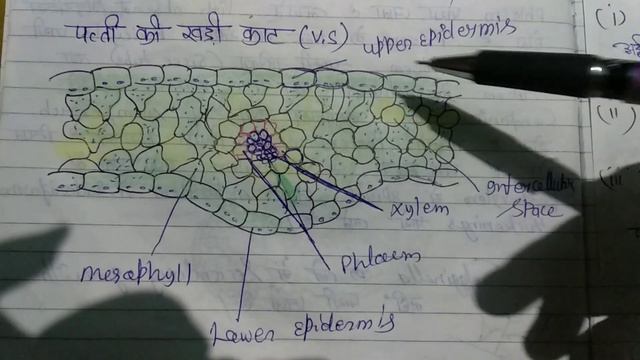 पत्ती की खड़ी काट (V.S)
upper epidermis
intercellular
space
xylem
Phloem
mesophyll
Lower epidermis
(i)
(ii)
(iii